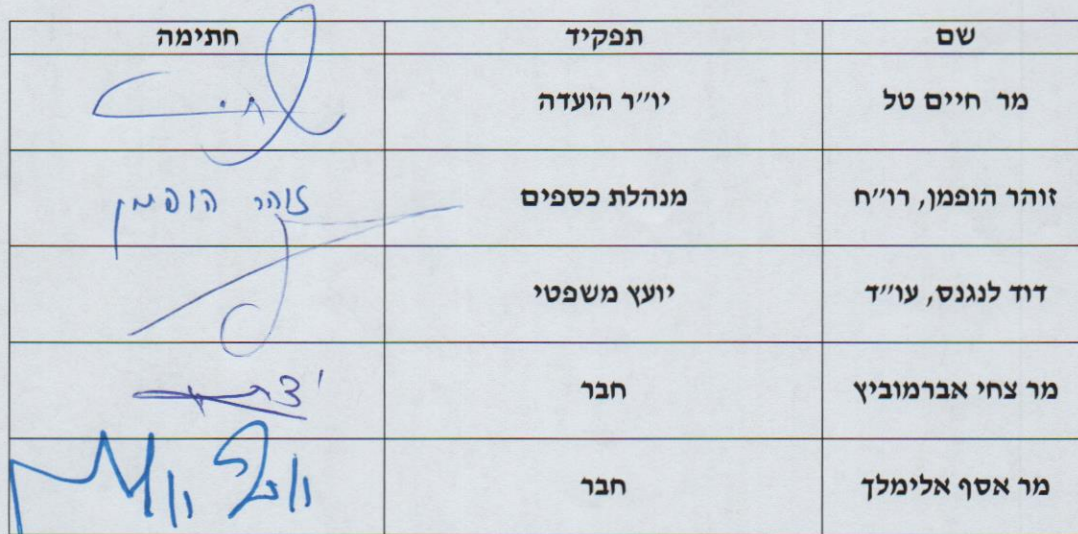 שם תפקיד חתימה
מר חיים טל יו״ר הועדה
זוהר הופמן, רו״ח מנהלת כספים זוהר הופמן
דוד לנגנס, עו״ד יועץ משפטי
מר צחי אברמוביץ חבר
מר אסף אלימלך חבר